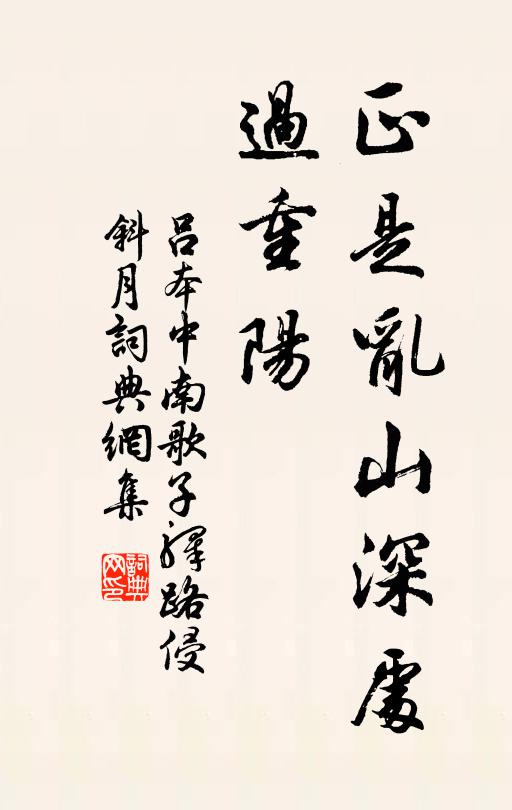 正是亂山深處
過重陽
吕本中南歌子驛路侵
斜月詞典網集
詞典网印